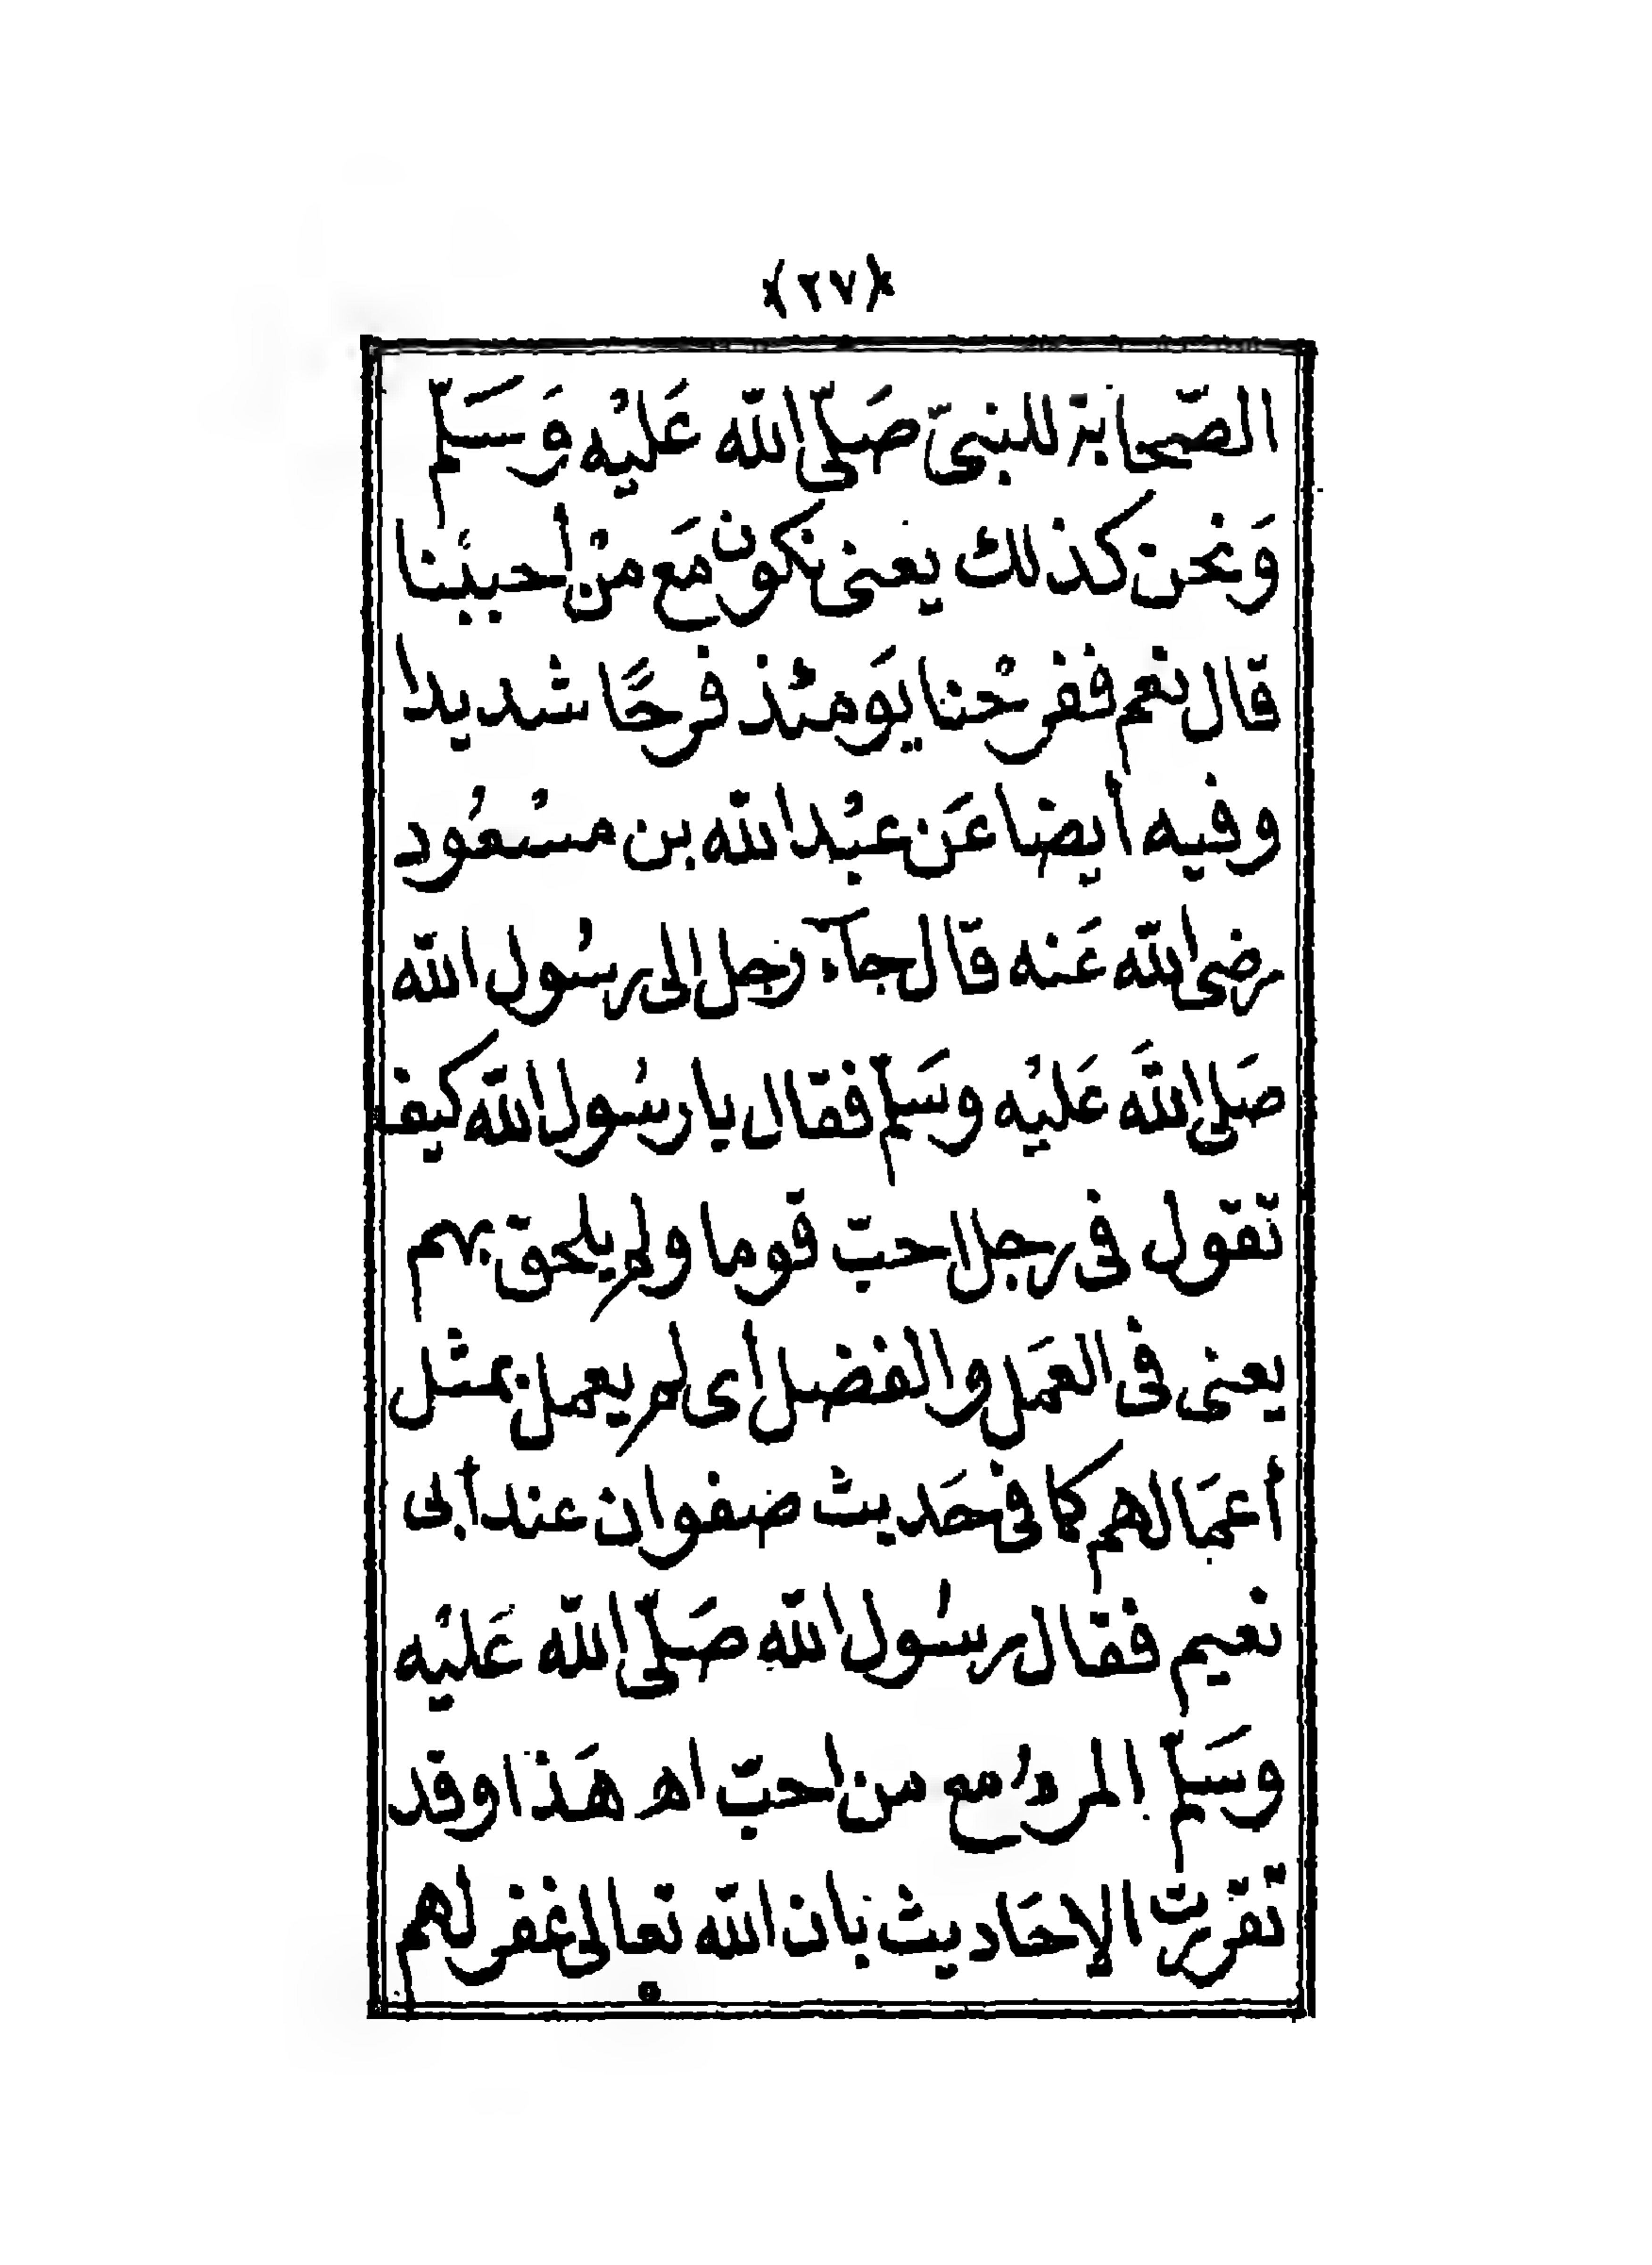 ﴿٢٧﴾
الصّحابة للنبىّ صَلّى الله عَليْه وَسَلّم
وَنحن كذلك يعنى نكون مَع منْ أحببْنا
قال نعم ففرحْنا يَومئذ فرحًا شديدا
وفيه أيضا عَن عبْد الله بن مسْعُود
رضى الله عَنه قال جآء رجل إلى رسُول الله
صَلى الله عَليْه وسَلم فقال يا رسُول الله كيف
تقول فى رجل احبّ قوما ولم يلحق بهم
يعنى فى العمَل والفضل أى لم يعمل بمثل
أعمَالهم كما فى حَديث صفوان عند أبى
نعيم فقال رسُول الله صَلّى الله عَليْه
وسَلّم المرءُ مع من احبّ اه هَذا وقد
تقررت الاحَاديث بان الله تعالى غفر لهم